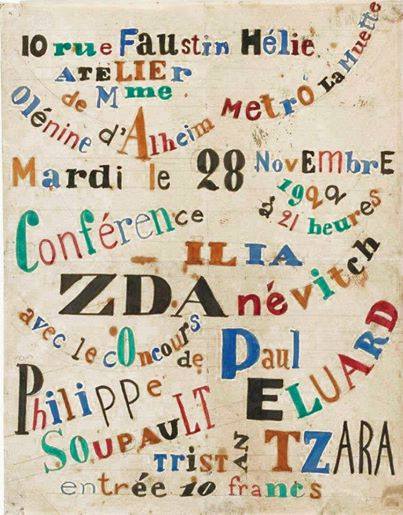 10 rue Faustin Hélie
Métro La Muette
ATELIEr
de Mme
Olénine d'Alheim
Mardi le 28 NovEmbrE
1922
à 21 heures
Conférence
ILIA
ZDAnévitch
avec le concours
de Paul
ELUARD
PhilipPe
SOUPAuLT
TrISTAN TZARA
entrée 10 francs